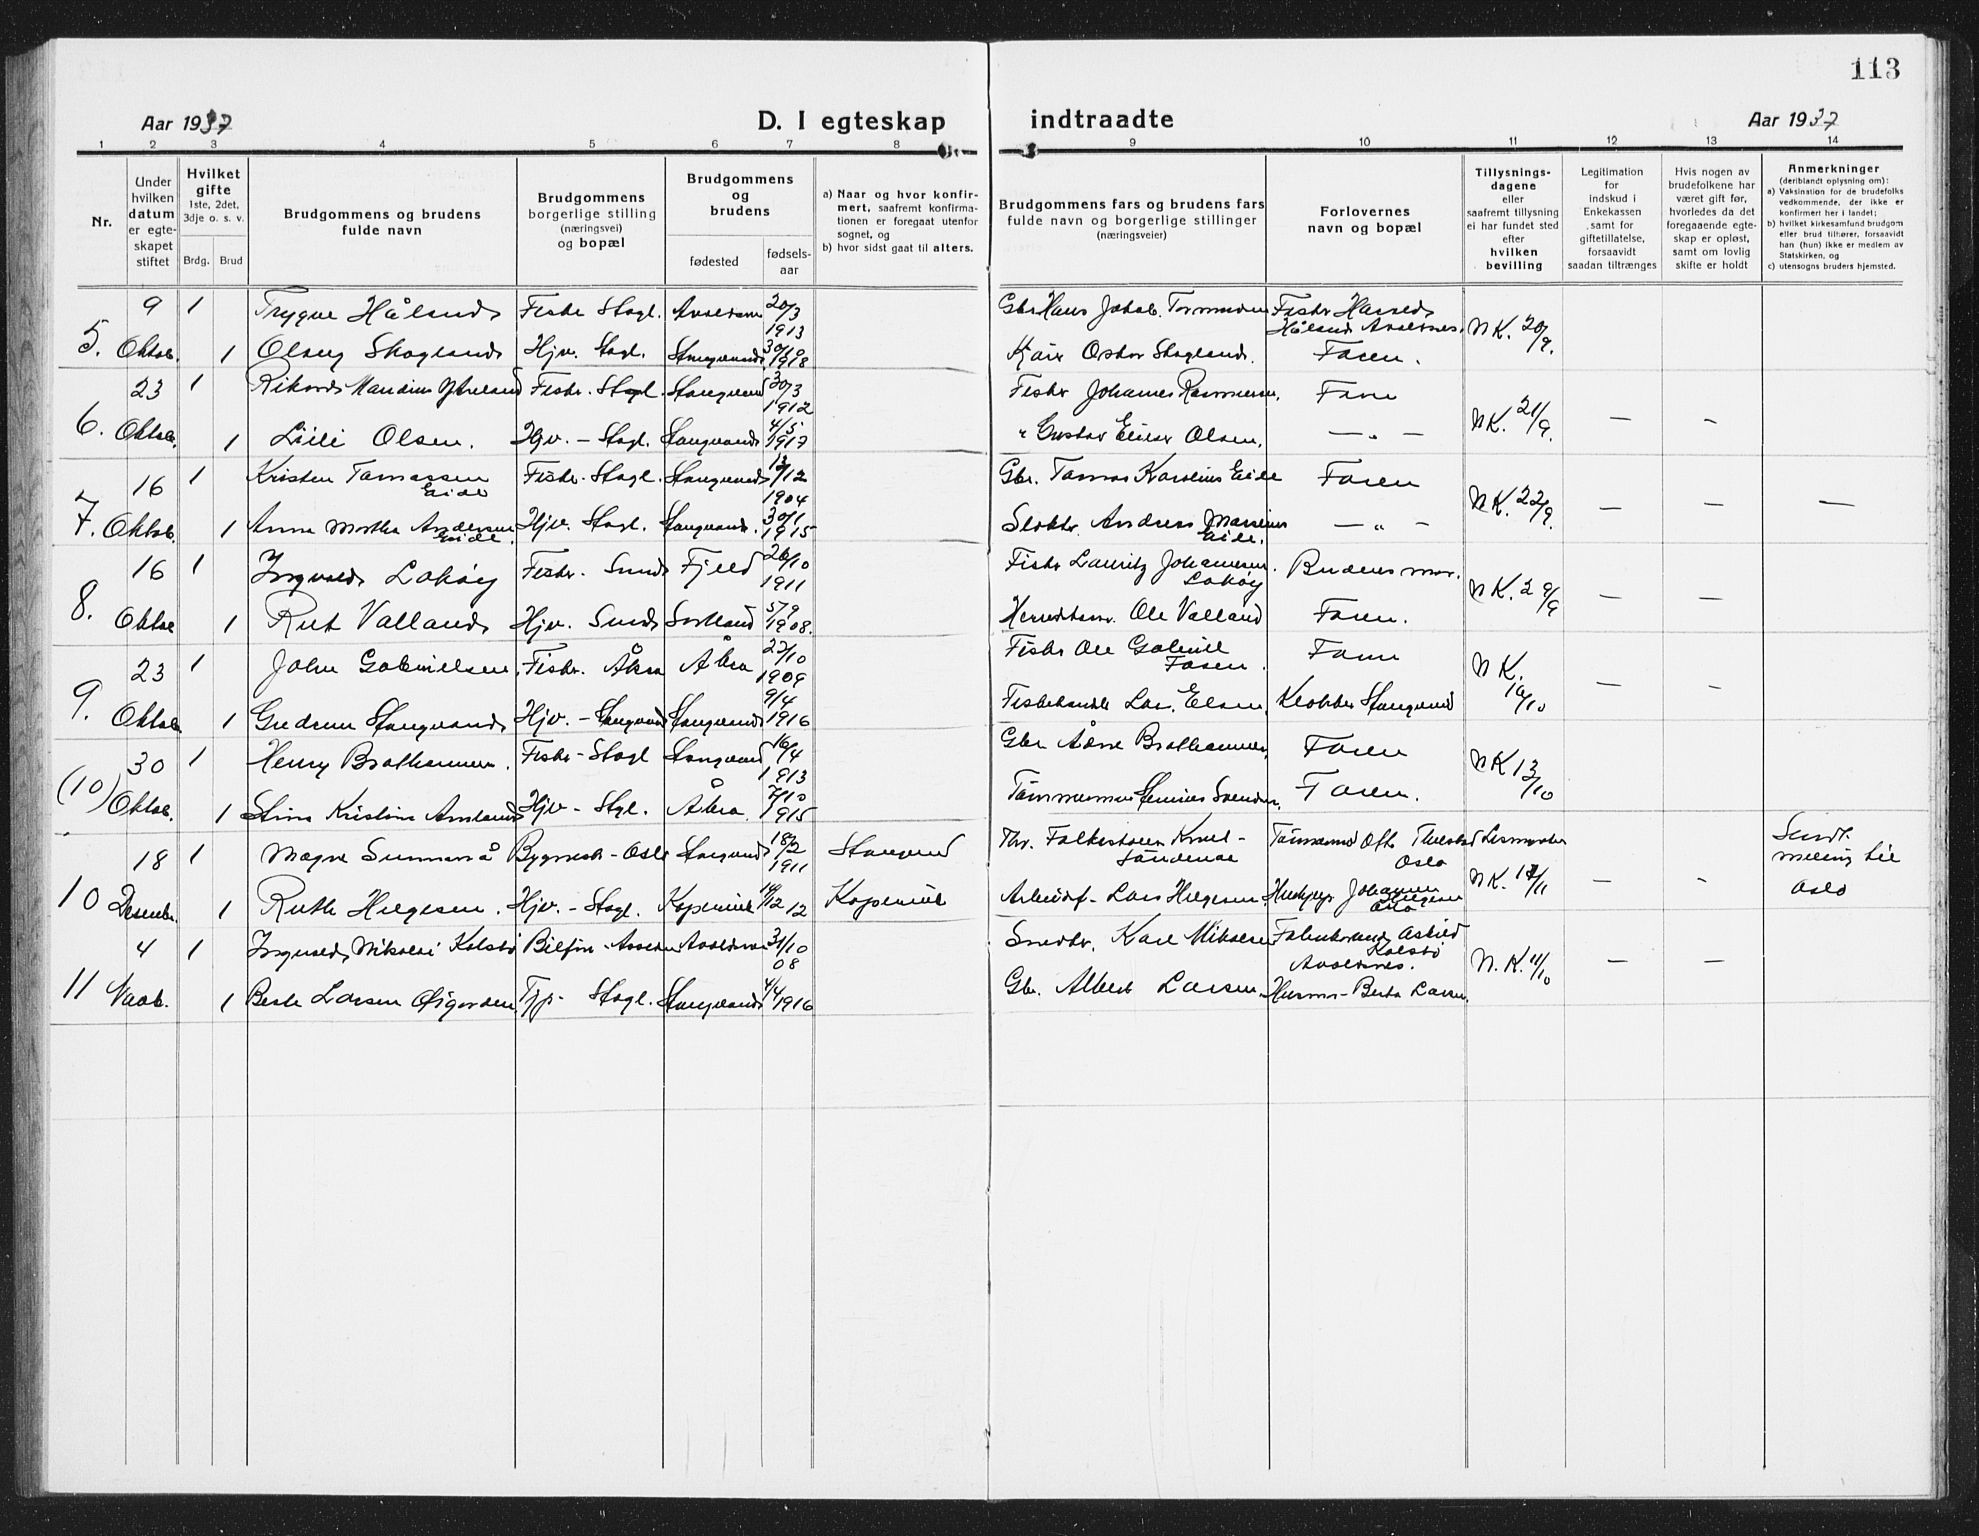 113
Aar 1937
D. I egteskap
indtraadte
Aar 1937
1 2 3 4 5 6 7 8 9 10 11 12 13 14
Nr.
Under hvilken datum er egteskapet stiftet
Hvilket gifte
1ste, 2det, 3dje o. s. v.
Brdg. Brud
Brudgommens og brudens fulde navn
Brudgommens borgerlige stilling (næringsvei) og bopæl
Brudgommens og brudens
fødested
fødselsaar
a) Naar og hvor konfirmert, saafremt konfirmationen er foregaat utenfor sognet, og
b) hvor sidst gaat til alters.
Brudgommens fars og brudens fars fulde navn og borgerlige stillinger
(næringsveier)
Forlovernes navn og bopæl
Tillysningsdagene eller saafremt tillysning ei har fundet sted efter hvilken bevilling
Legitimation for indskud i Enkekassen samt for giftetillatelse, forsaavidt saadan tiltrænges
Hvis nogen av brudefolkene har været gift før, hvorledes da det foregaaende egteskap er opløst, samt om lovlig skifte er holdt
Anmerkninger
(deriblandt oplysning om):
a) Vaksination for de brudefolks vedkommende, der ikke er konfirmert her i landet;
b) hvilket kirkesamfund brudgom eller brud tilhører, forsaavidt han (hun) ikke er medlem av Statskirken, og
c) utensogns bruders hjemsted.
5. 9 Oktob. 1 Trygve Håland Fisker Skogl. 20/3 1913 Gbr Hans Jakob Fisker Håland Avaldsnes N K. 20/9.
1 Olaug Skogland Hjv. Skogl. Stangeland 30/10 1918 Oskar Skogland. Faren.
6. 23 Oktob. 1 Fisker. Skogl. Stangeland 20/3 1912 Fisker Johannes Rasmussen. Faren N K. 21/9. — –
1 Lilli Olsen. Hjv. – Skogl. Stangeland 4/5 1917 " Gustav Olsen. — " —
7. 16 Oktob. 1 Kristen Tomassen Eide Fisker. Skogl. Stangeland 1904 Gbr. Tomas Karolius Eide Faren N K. 22/9. — — —
1 Anna Martha Andersen Eide. Hjv. Skogl. Stangeland. 30/1 1915 Andreas Eide. — " –
8. 16 Oktob 1 Ingvald Lokøy Fisker. Sund Fjell 26/10 1911 Fisker Lauritz Johannesen Lokøy Brudens mor. N K. 29/9 — —
1 Rut Valland Hjv. Sund 5/9 1908. Ole Valland Faren.
9. 23 Oktob 1 John Gabrielsen Fisker. Åkra Åkra 27/10 1909 Fisker Ole Gabriel Faren Faren N K. 16/10 — –
1 Gudrun Stangeland Hjv. – Stangeland Stangeland 9/4 1916 Fiskehandler Lar. Elsen. Klokker Stangeland
(10) 30 Oktob. 1 Henry Brathammer. Fisker – Skogl Stangeland 16/4 1913 Gbr Brathammer. Faren N K 13/10
1 Stina Kristine Hjv – Skgl. Åkra 7/10 1915 Tømmermann Svendsen. Faren.
10 18 Desember. 1 Magne Sunnanå – Oslo Stangeland 18/2 1911 Stangeland Knut Oslo N K. 17/11 — – Sendt melding til Oslo
1 Ruth Helgesen. Hjv. – Skogl. Kopervik 12 Kopervik Lars Helgesen. Johannes Helgesen Oslo
11 4 Novb. 1 Ingvald Nikolai Kolstø 31/10 08 Karl Mikalsen Astrid Kolstø Avaldsnes. N. K. 11/10 — —
1 Larsen Øigarden Tjp – Skogl. Stangeland 4/4 1916 Gbr. Albert Larsen. Berta Larsen.